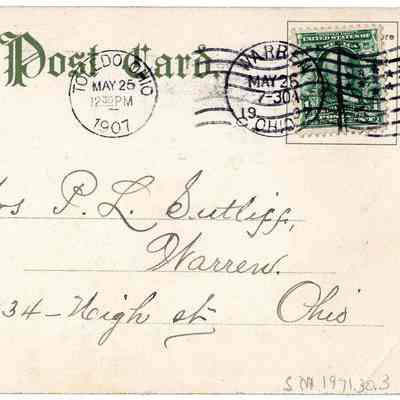 Post Card.
TOLEDO, OHIO
MAY 25
12 30 PM
1907
WARREN
MAY 26
7-30A
19
OHIO
UNITED STATES OF
P. L. Sutliff,
Warren.
34-High st. Ohio
S.M 1971.30.3